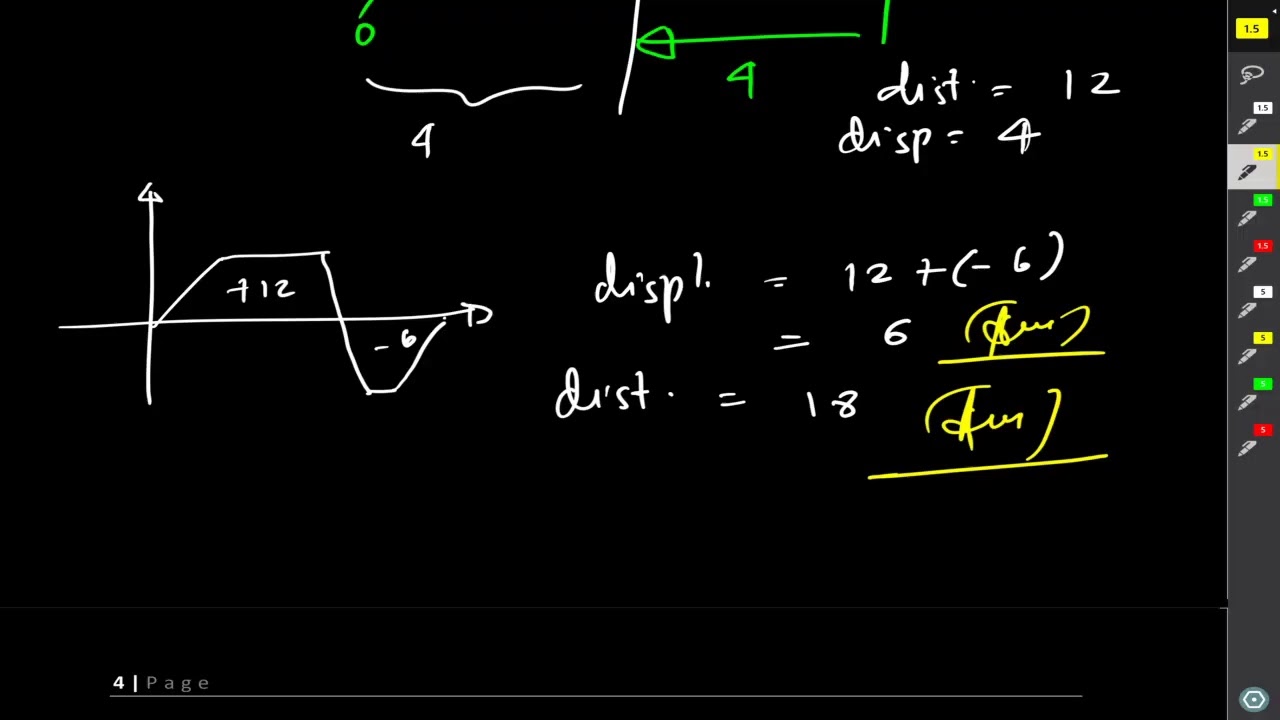 0
4
dist. = 12
4
disp = 4
+12
displ. = 12 + (- 6)
- 6
= 6 (Ans)
dist. = 18 (Ans)
4 | Page
1.5
1.5
1.5
1.5
1.5
5
5
5
5